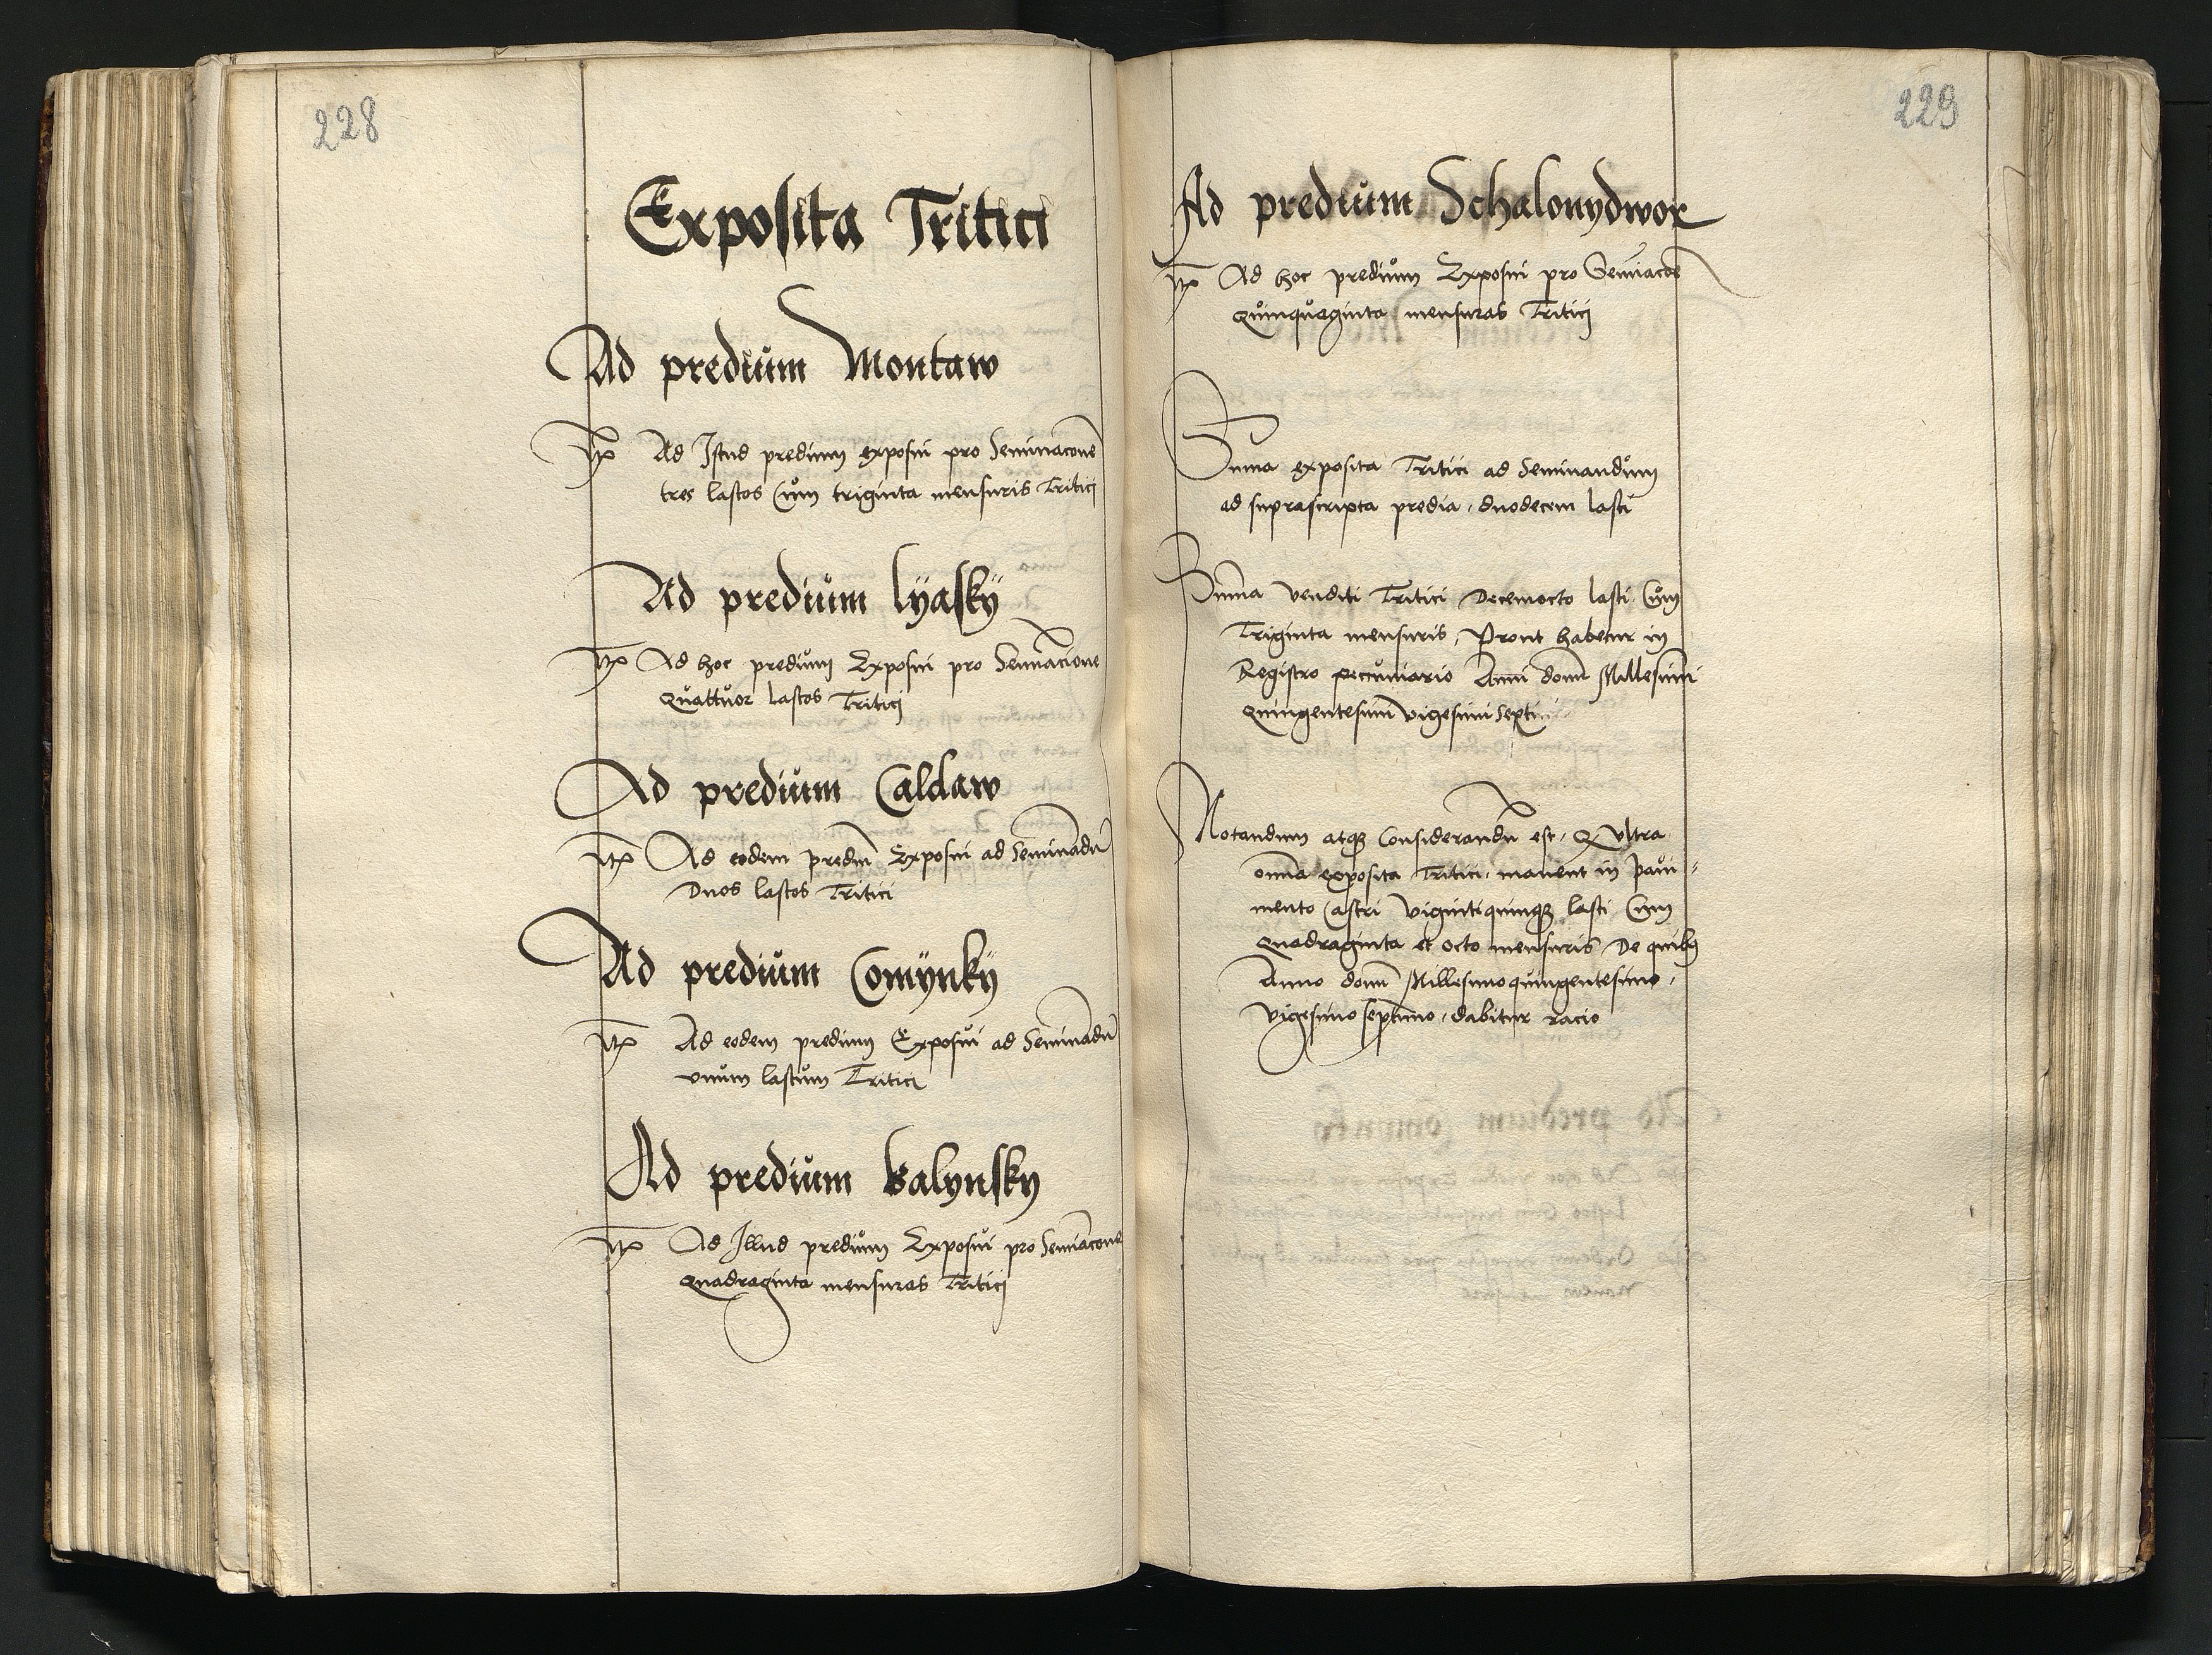 228
Exposita Tritici
Ad predium Montaw
Itē Ad Istud predium exposui pro Seminacione
tres lastos Cum triginta mensuris Tritici
Ad predium lÿaskÿ
Itē Ad hoc predium Exposui pro Seminacione
Quattuor lastos Tritici
Ad predium Caldaw
Itē Ad eodem prediū Exposui ad Seminadū
Duos lastos Tritici
Ad predium Comÿnkÿ
Itē Ad eodem predium Exposui ad Seminadū
vnum lastum Tritici
Ad predium kalynsky
Itē Ad Illud predium Exposui pro Seminacone
Quadraginta mensuras Tritici
229
Ad predium Schalonydwor
Itē Ad hoc predium Exposui pro Seminacōe
Quinquaginta mensuras Tritici
Suma exposita Tritici ad Seminandum
ad suprascripta predia, duodecem lasti
Suma venditi Tritici Decemocto lasti Cum
Triginta mensuris, Prout habetur in
Registro peccuniario Anni domī Millesimi
quingentesimi vigesimi Septi
Notandum atqꝫ Considerandū est, Q Vltra
omīa exposita Tritici, manent in Paui-
mento Castri vigintiquinqꝫ lasti Cum
Quadraginta et octo mensuris De quibꝫ
Anno domī Millesimoquingentesimo,
Vigesimo septimo, dabitur racio